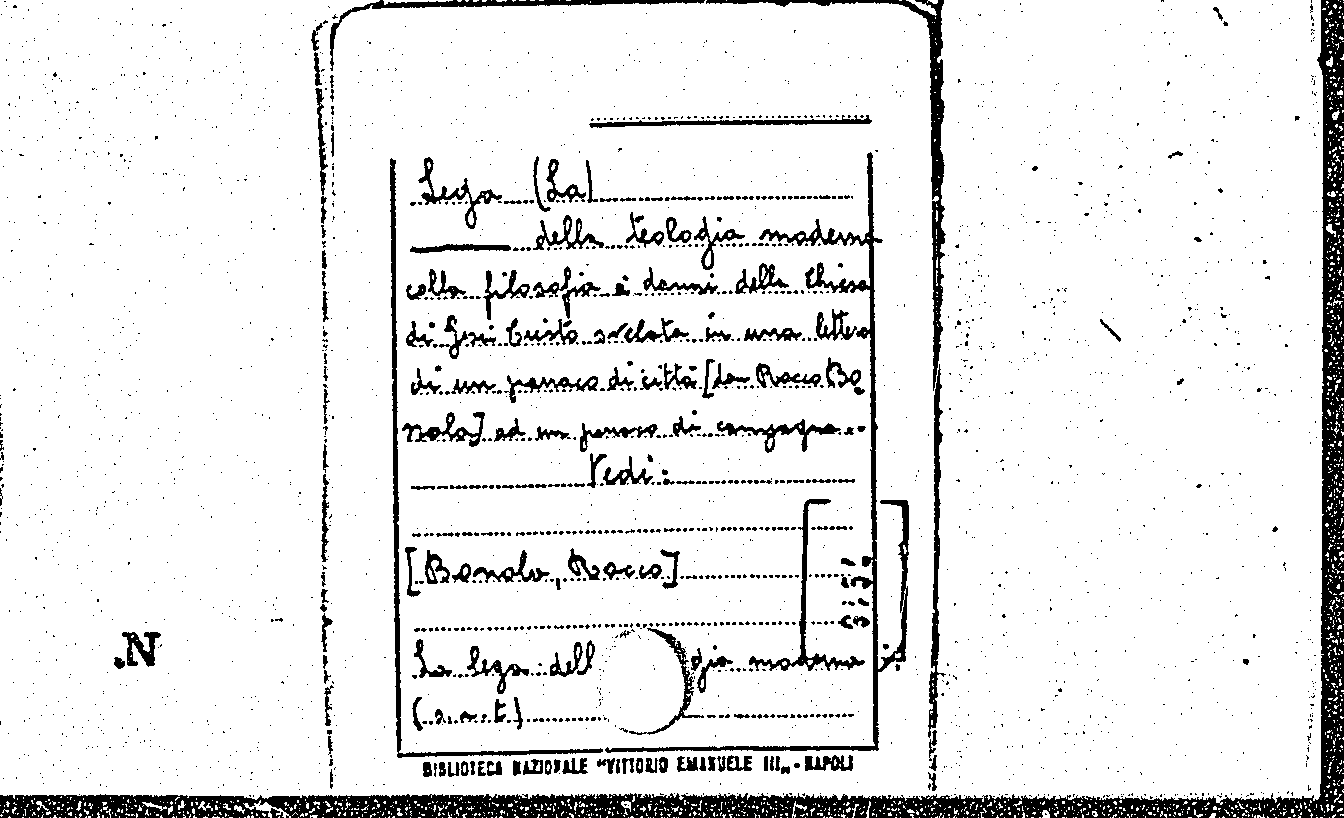 Lega (La)
della teologia moderna
colla filosofia a' danni della Chiesa
di Gesù Cristo svelata in una lettera
di un parroco di città [da Rocco Bo
nola] ad un parroco di campagna...
Vedi:
[Bonola, Rocco]
La lega dell gia moderna
(s.n.t)
BIBLIOTECA NAZIONALE "VITTORIO EMANUELE III„ - NAPOLI
N.